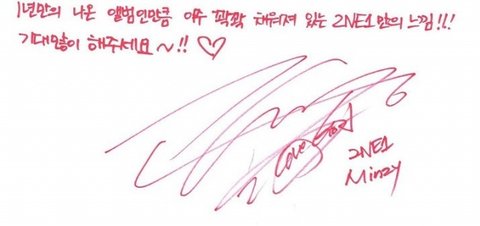 1년만의 나온 앨범인만큼 아주 꽉꽉 채워져 있는 2NE1 만의 느낌!!!
기대많이 해주세요~!! ♡
2NE1
Minzy